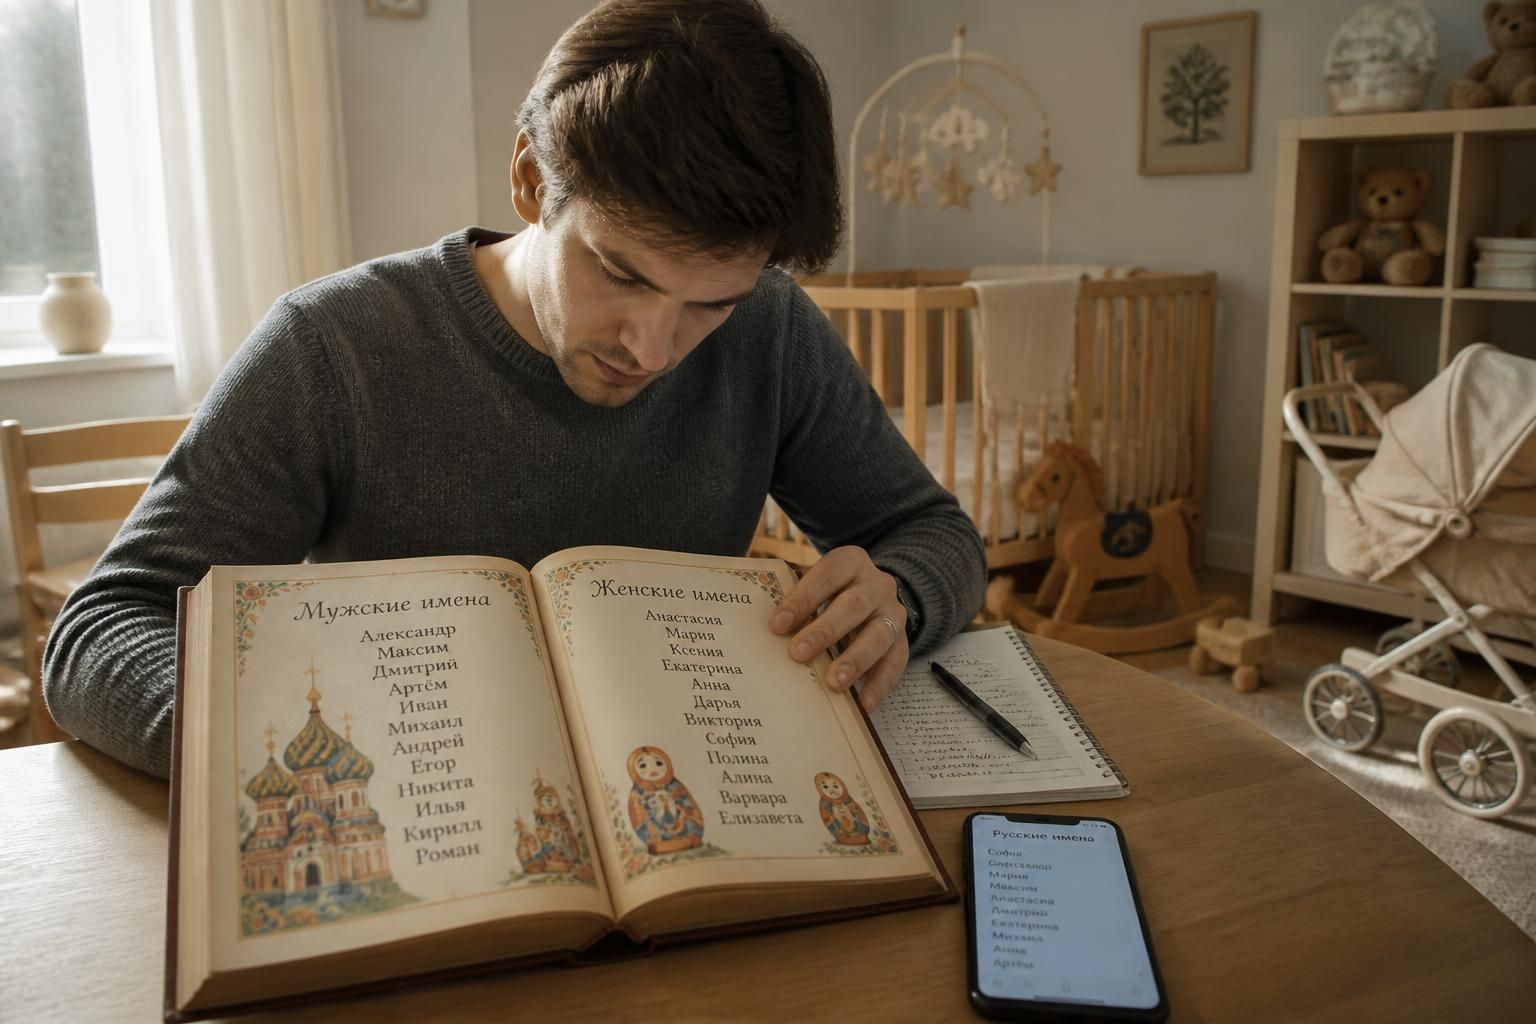 Мужские имена
Александр
Максим
Дмитрий
Артём
Иван
Михаил
Андрей
Егор
Никита
Илья
Кирилл
Роман
Женские имена
Анастасия
Мария
Ксения
Екатерина
Анна
Дарья
Виктория
София
Полина
Алина
Варвара
Елизавета
Русские имена
София
Мария
Максим
Анастасия
Дмитрий
Екатерина
Михаил
Анна
Артём